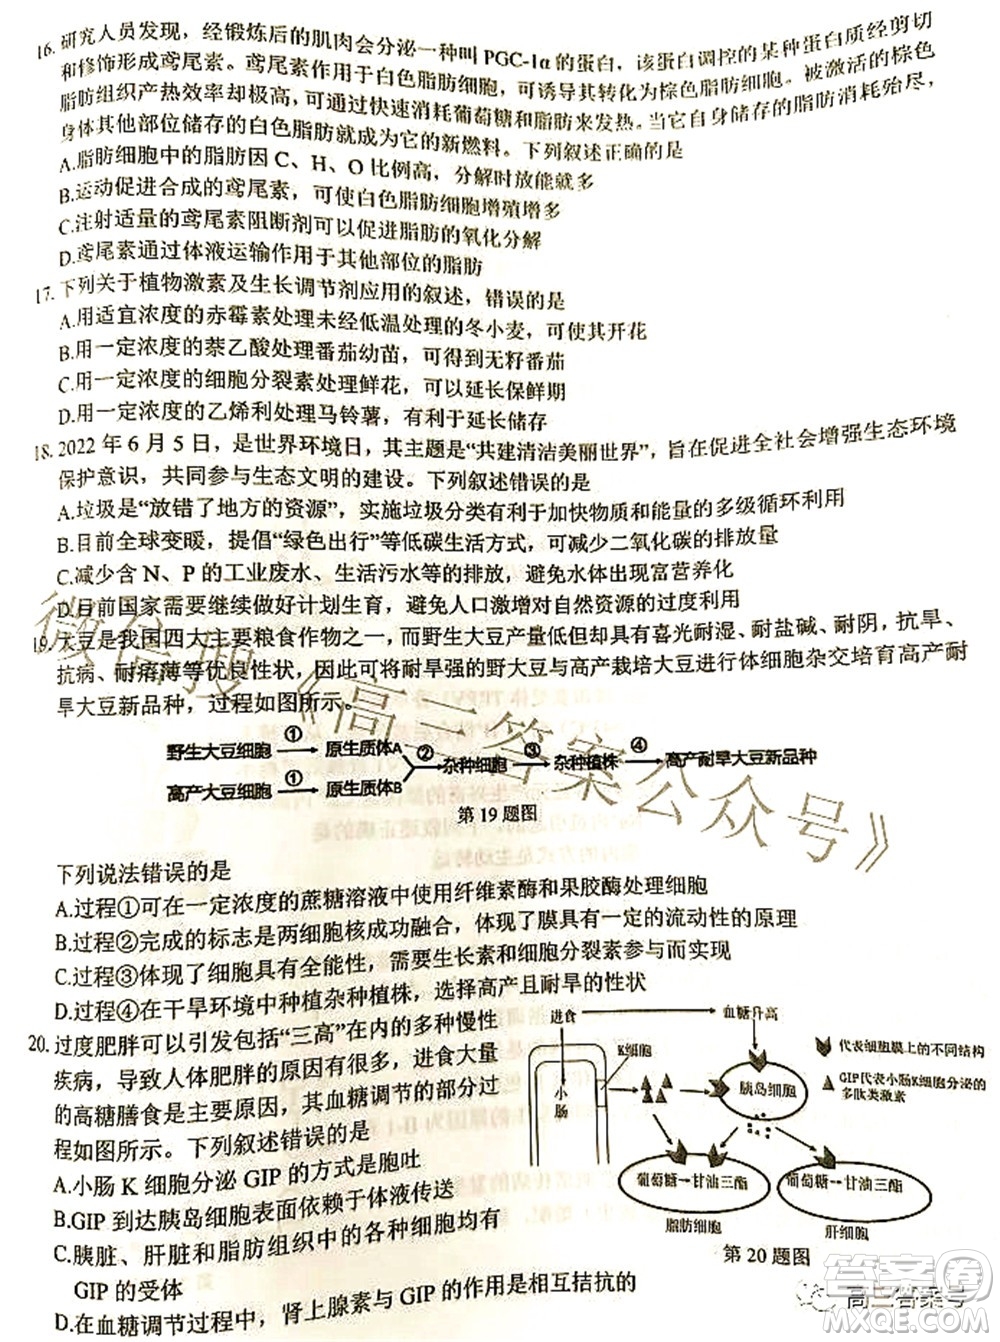 16. 研究人员发现，经锻炼后的肌肉会分泌一种叫 PGC-1α 的蛋白，该蛋白调控的某种蛋白质经剪切
和修饰形成鸢尾素。鸢尾素作用于白色脂肪细胞，可诱导其转化为棕色脂肪细胞。被激活的棕色
脂肪组织产热效率却极高，可通过快速消耗葡萄糖和脂肪来发热。当它自身储存的脂肪消耗殆尽，
身体其他部位储存的白色脂肪就成为它的新燃料。下列叙述正确的是
A.脂肪细胞中的脂肪因 C、H、O 比例高，分解时放能就多
B.运动促进合成的鸢尾素，可使白色脂肪细胞增殖增多
C.注射适量的鸢尾素阻断剂可以促进脂肪的氧化分解
D.鸢尾素通过体液运输作用于其他部位的脂肪
17. 下列关于植物激素及生长调节剂应用的叙述，错误的是
A.用适宜浓度的赤霉素处理未经低温处理的冬小麦，可使其开花
B.用一定浓度的萘乙酸处理番茄幼苗，可得到无籽番茄
C.用一定浓度的细胞分裂素处理鲜花，可以延长保鲜期
D.用一定浓度的乙烯利处理马铃薯，有利于延长储存
18. 2022 年 6 月 5 日，是世界环境日，其主题是“共建清洁美丽世界”，旨在促进全社会增强生态环境
保护意识，共同参与生态文明的建设。下列叙述错误的是
A.垃圾是“放错了地方的资源”，实施垃圾分类有利于加快物质和能量的多级循环利用
B.目前全球变暖，提倡“绿色出行”等低碳生活方式，可减少二氧化碳的排放量
C.减少含 N、P 的工业废水、生活污水等的排放，避免水体出现富营养化
D.目前国家需要继续做好计划生育，避免人口激增对自然资源的过度利用
19. 大豆是我国四大主要粮食作物之一，而野生大豆产量低却具有喜光耐湿、耐盐碱、耐阴，抗旱、
抗病、耐瘠薄等优良性状。研究人员将耐旱强的野大豆与高产栽培大豆进行体细胞杂交培育高产耐
旱大豆新品种，过程如图所示。
野生大豆细胞 ① 原生质体A ② 杂种细胞 ③ 杂种植株 ④ 高产耐旱大豆新品种
高产大豆细胞 ① 原生质体B
第 19 题图
下列说法错误的是
A.过程①可在一定浓度的蔗糖溶液中使用纤维素酶和果胶酶处理细胞
B.过程②完成的标志是两细胞核成功融合，体现了膜具有一定的流动性的原理
C.过程③体现了细胞具有全能性，需要生长素和细胞分裂素参与而实现
D.过程④在干旱环境中种植杂种植株，选择高产且耐旱的性状
20. 过度肥胖可以引发包括“三高”在内的多种慢性
疾病，导致人体肥胖的原因有很多，进食大量
的高糖膳食是主要原因，其血糖调节的部分过
程如图所示。下列叙述错误的是
A.小肠 K 细胞分泌 GIP 的方式是胞吐
B.GIP 到达胰岛细胞表面依赖于体液传送
C.胰脏、肝脏和脂肪组织中的各种细胞均有
GIP 的受体
D.在血糖调节过程中，肾上腺素与 GIP 的作用是相互拮抗的
进食
血糖升高
K细胞
小肠
胰岛细胞
代表细胞膜上的不同结构
GIP代表小肠K细胞分泌的
多肽类激素
葡萄糖→甘油三酯
脂肪细胞
葡萄糖→甘油三酯
肝细胞
第 20 题图
微信搜《高三答案公众号》
高三答案号
答案圈
MXQE.COM